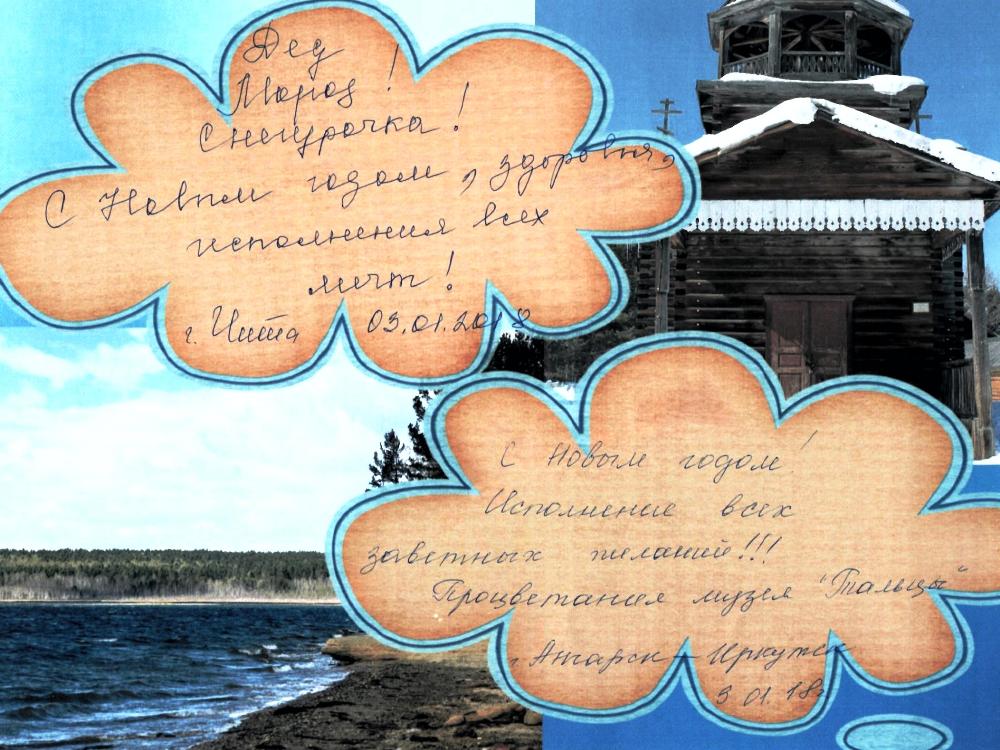 Дед
Мороз !
Снегурочка !
С Новым годом, здоровья,
исполнения всех
мечт !
г. Чита 03.01.2018
С Новым годом!
Исполнение всех
заветных желаний!!!
Процветания музея "Тальцы"
г. Ангарск – Иркутск
3 01. 18г